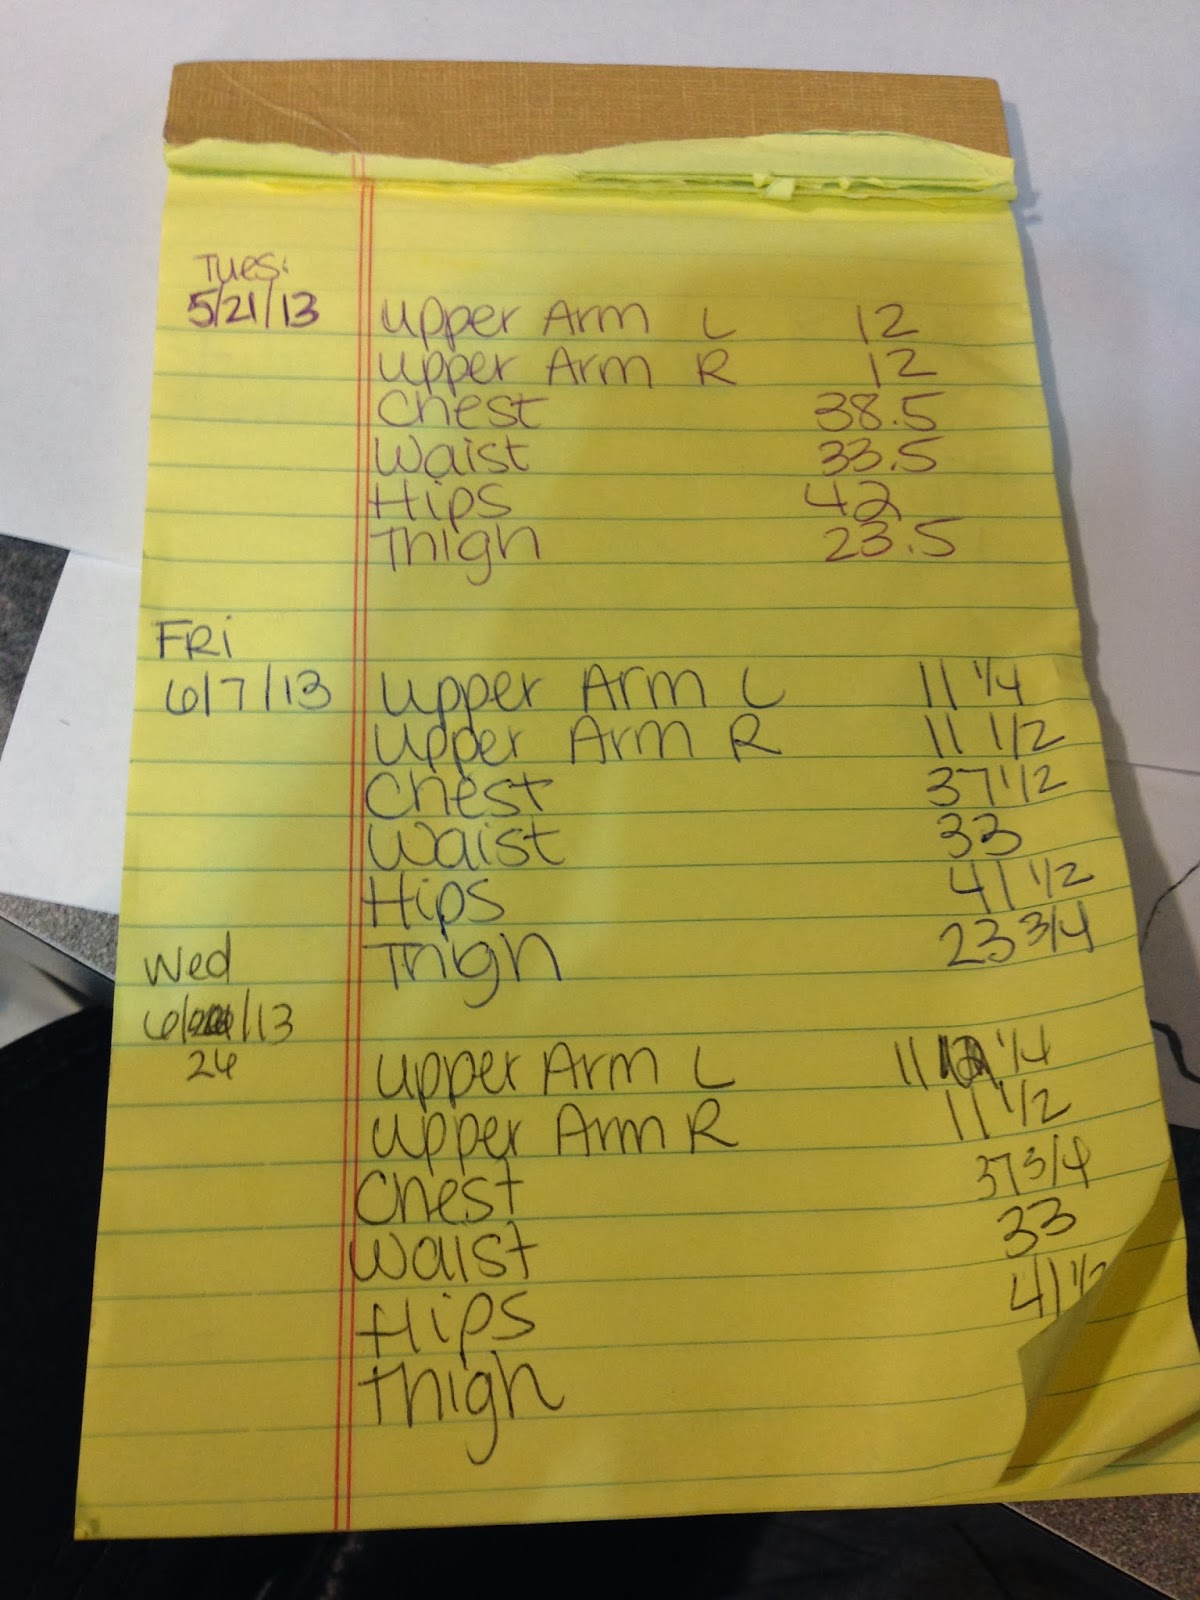 Tues:
5/21/13 Upper Arm L 12
Upper Arm R 12
Chest 38.5
Waist 33.5
Hips 42
Thigh 23.5
FRi
6/7/13 Upper Arm L 11 1/4
Upper Arm R 11 1/2
Chest 37 1/2
Waist 33
Hips 41 1/2
Thigh 23 3/4
Wed
6/ /13
26 Upper Arm L 11 1/4
Upper Arm R 11 1/2
Chest 37 3/4
Waist 33
Hips 41 1/2
Thigh